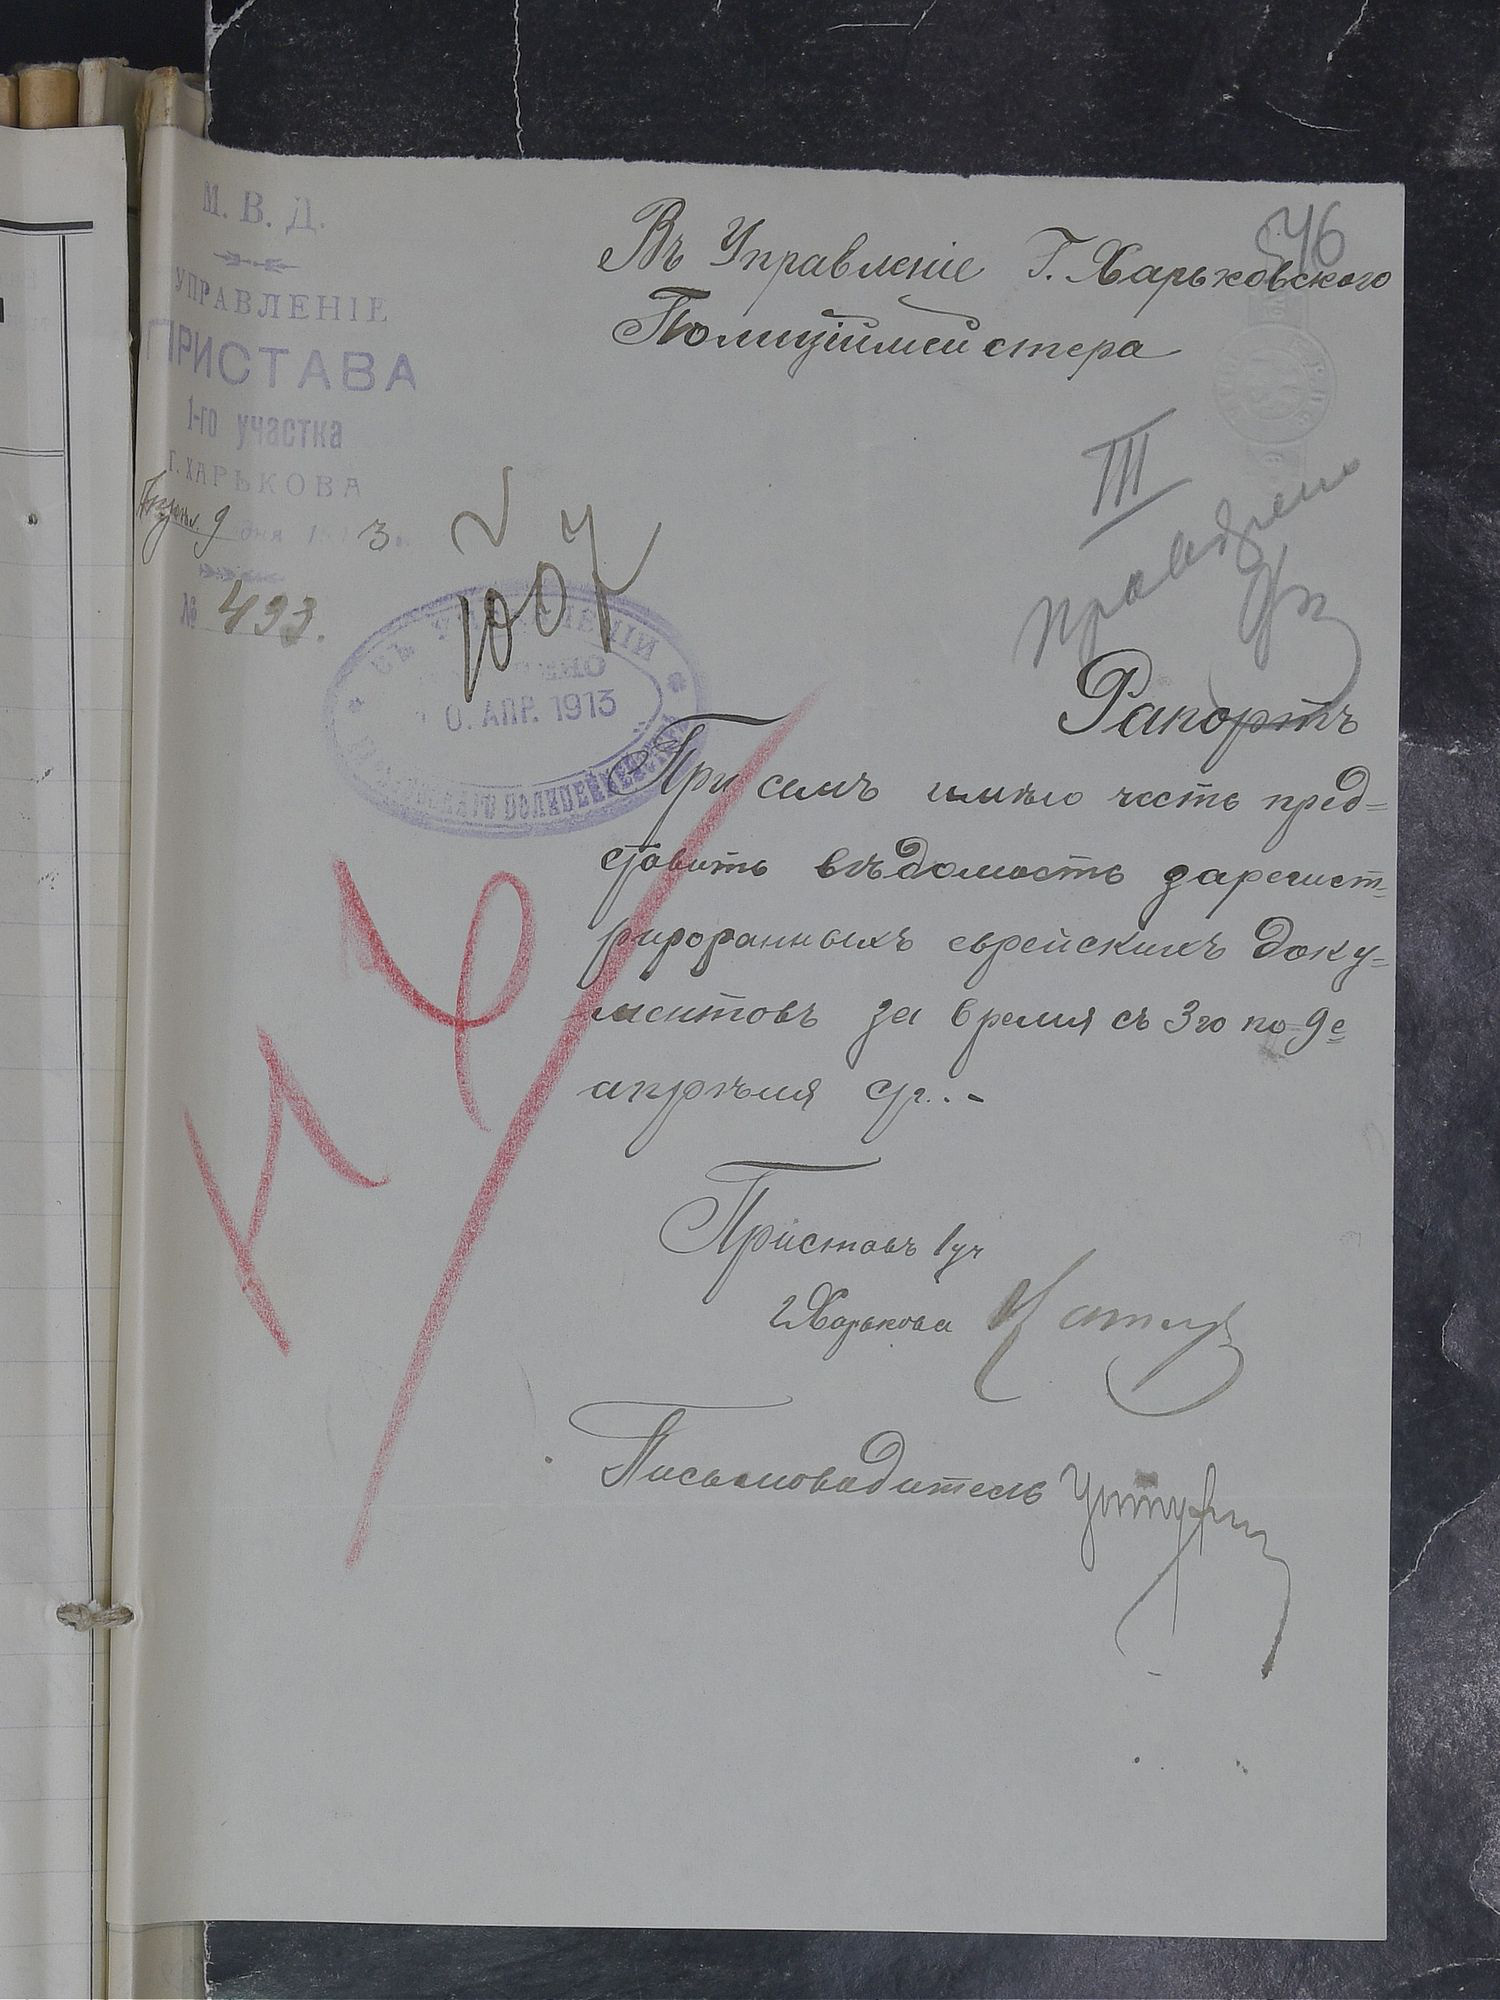 М. В. Д.
УПРАВЛЕНІЕ
ПРИСТАВА
1-го участка
Г. ХАРЬКОВА
Апрѣл. 9 дня 1913 г.
№ 493.
546
Въ Управленіе Г. Харьковского
Полиціймейстера
III
1007
ВЪ УПРАВЛЕНІИ
10. АПР. 1913
ПОЛИЦЕЙМЕЙСТЕРА
Рапортъ
При семъ имѣю честь пред=
ставить вѣдомость зарегист=
рированныхъ еврейскихъ доку=
ментовъ за время съ 3го по 9е
апрѣля с/г..-
Приставъ 1 уч
г Харькова
Письмоводитель